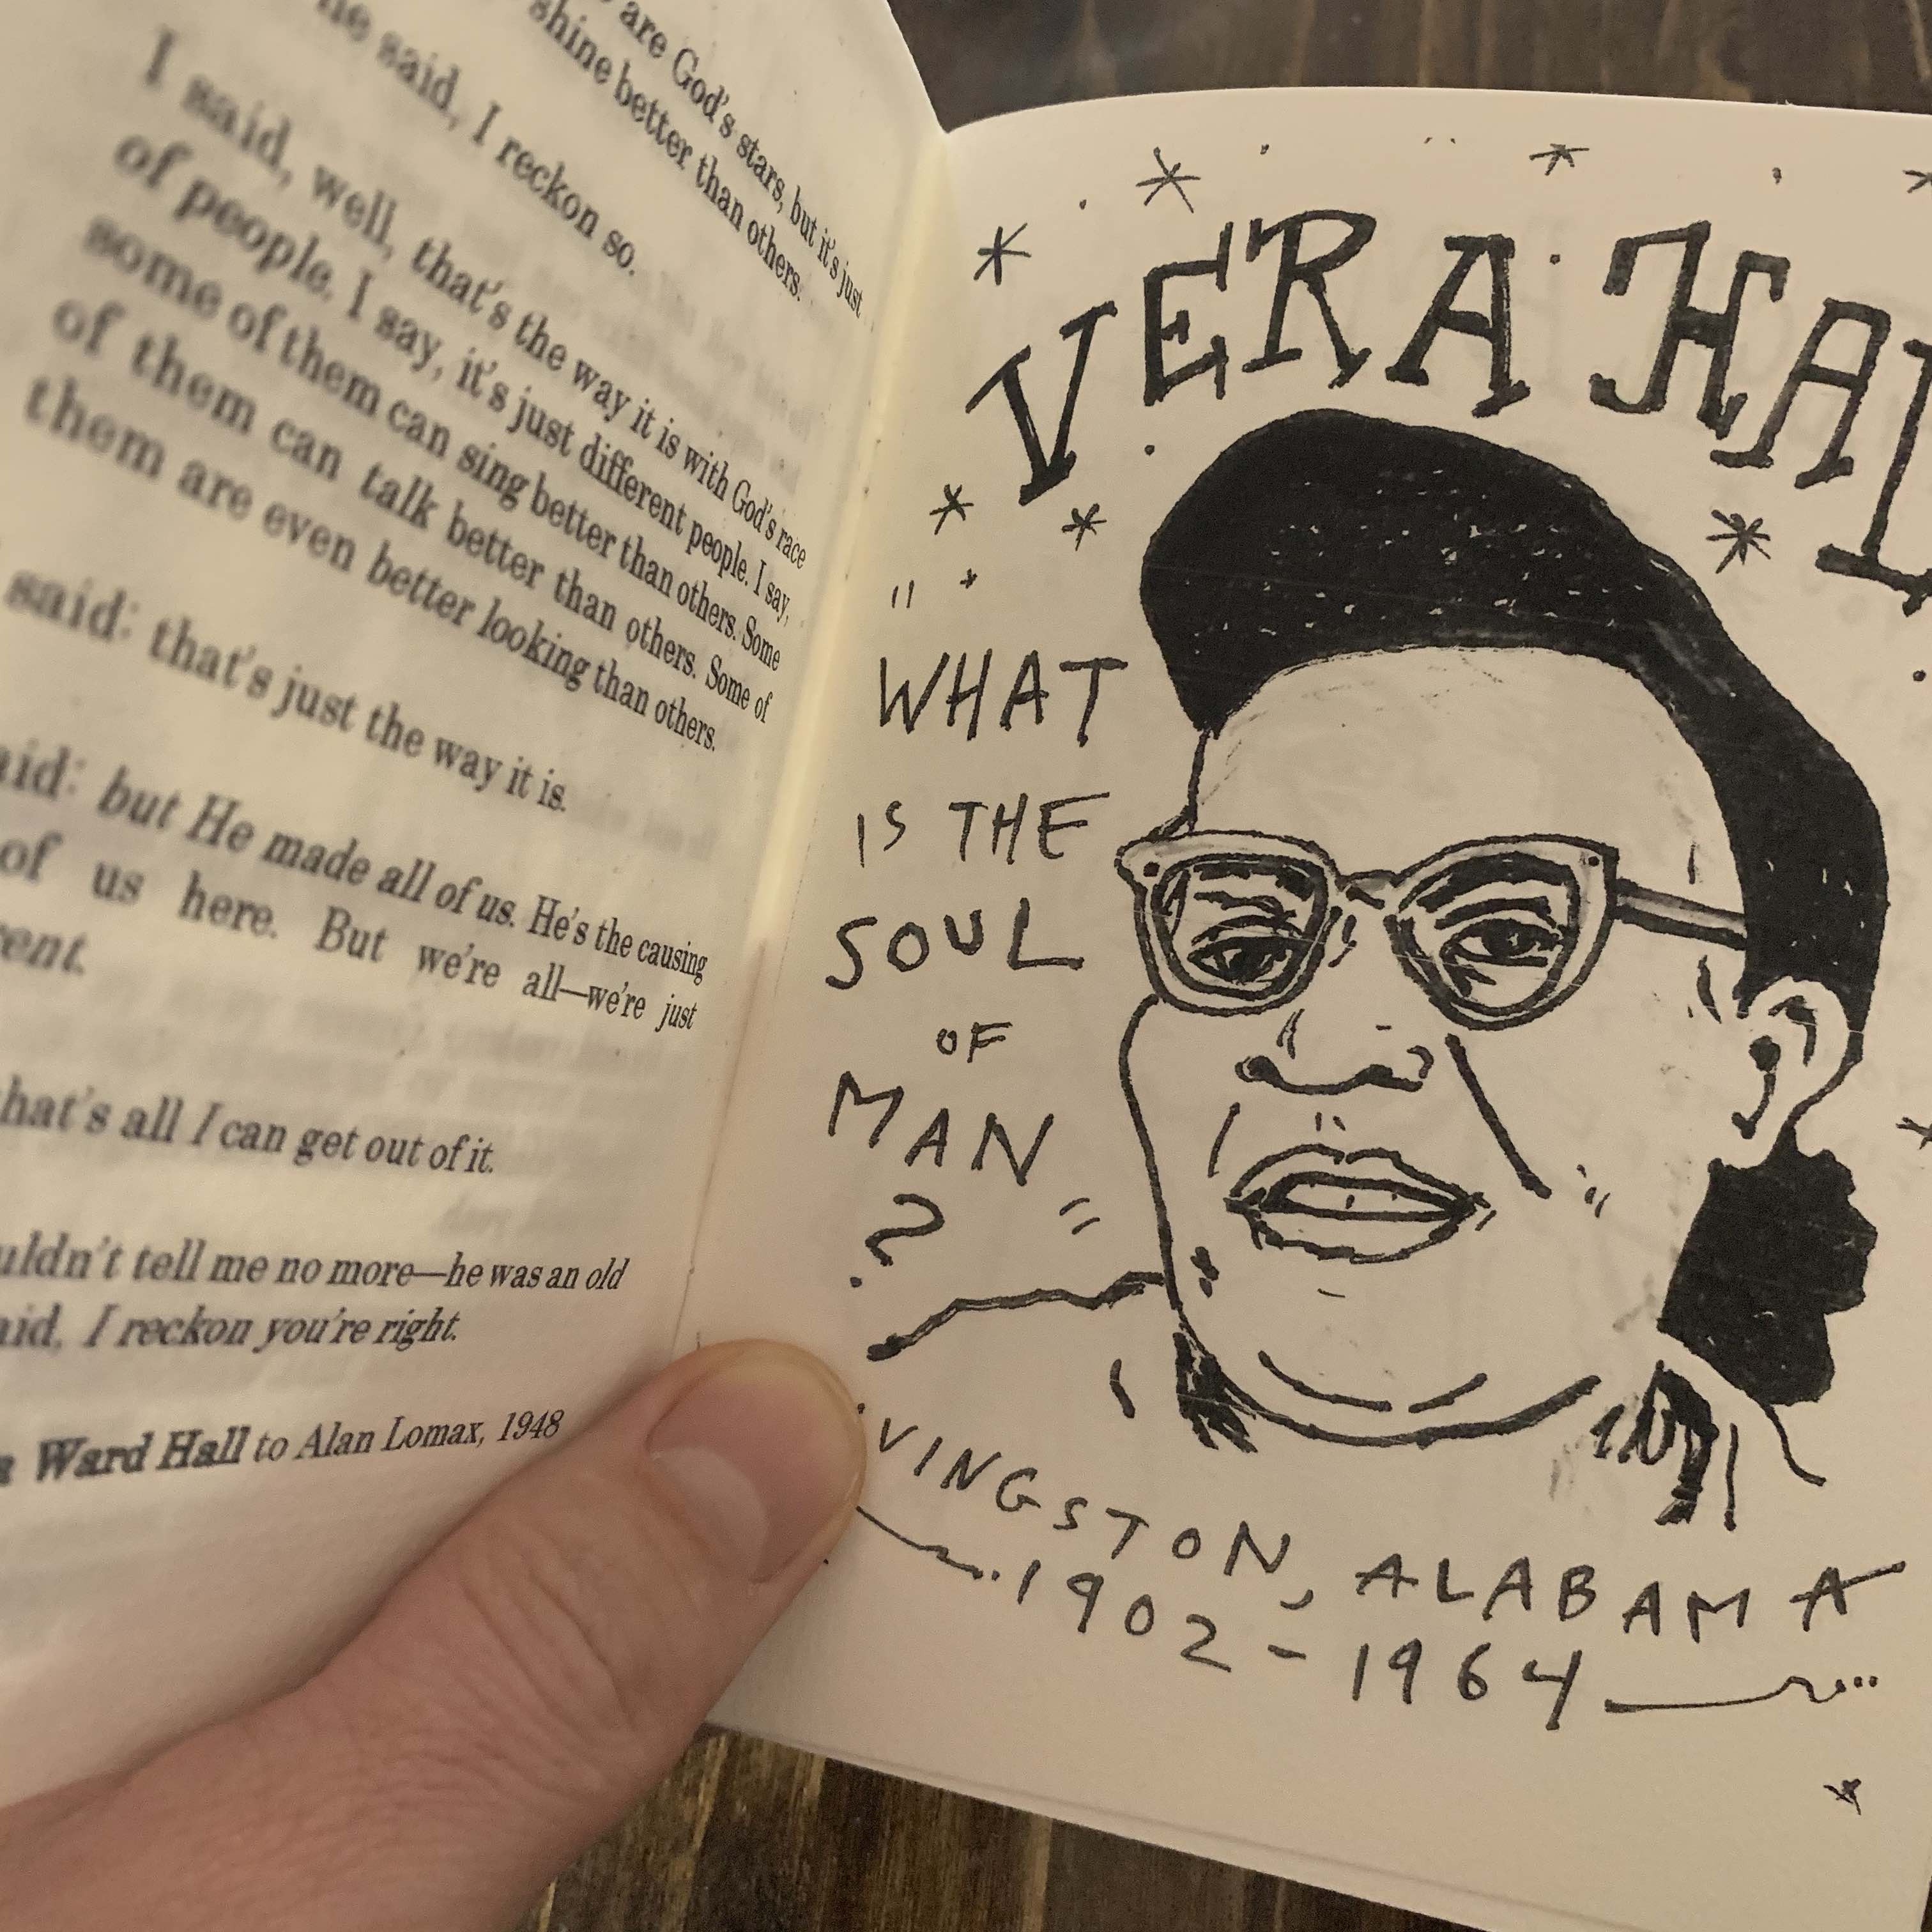 are God's stars, but it's just
shine better than others.
he said, I reckon so.
I said, well, that's the way it is with God's race
of people. I say, it's just different people. I say,
some of them can sing better than others. Some
of them can talk better than others. Some of
them are even better looking than others.
said: that's just the way it is.
aid: but He made all of us. He's the causing
of us here. But we're all—we're just
rent.
hat's all I can get out of it.
uldn't tell me no more—he was an old
aid, I reckon you're right.
a Ward Hall to Alan Lomax, 1948
VERA HAL
"WHAT
IS THE
SOUL
OF
MAN"
?
IVINGSTON, ALABAMA
1902 - 1964